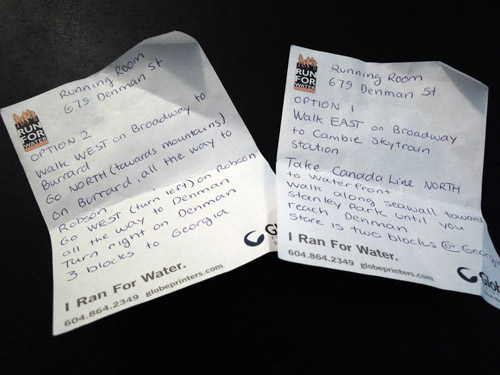 Running Room
679 Denman St
RUN
FOR
WATER
OPTION 2
Walk WEST on Broadway to
Burrard
Go NORTH (towards mountains)
on Burrard all the way to
Robson
Go WEST (turn left) on Robson
all the way to Denman
Turn right on Denman
3 blocks to Georgia
I Ran For Water.
604.864.2349 globeprinters.com
Running Room
679 Denman St
RUN
FOR
WATER
OPTION 1
Walk EAST on Broadway
to Cambie Skytrain
station
Take Canada Line NORTH
to waterfront
walk along seawall toward
Stanley Park until you
reach Denman
Store is two blocks @ Georg
I Ran For Water.
604.864.2349 globeprinters.com
Glob